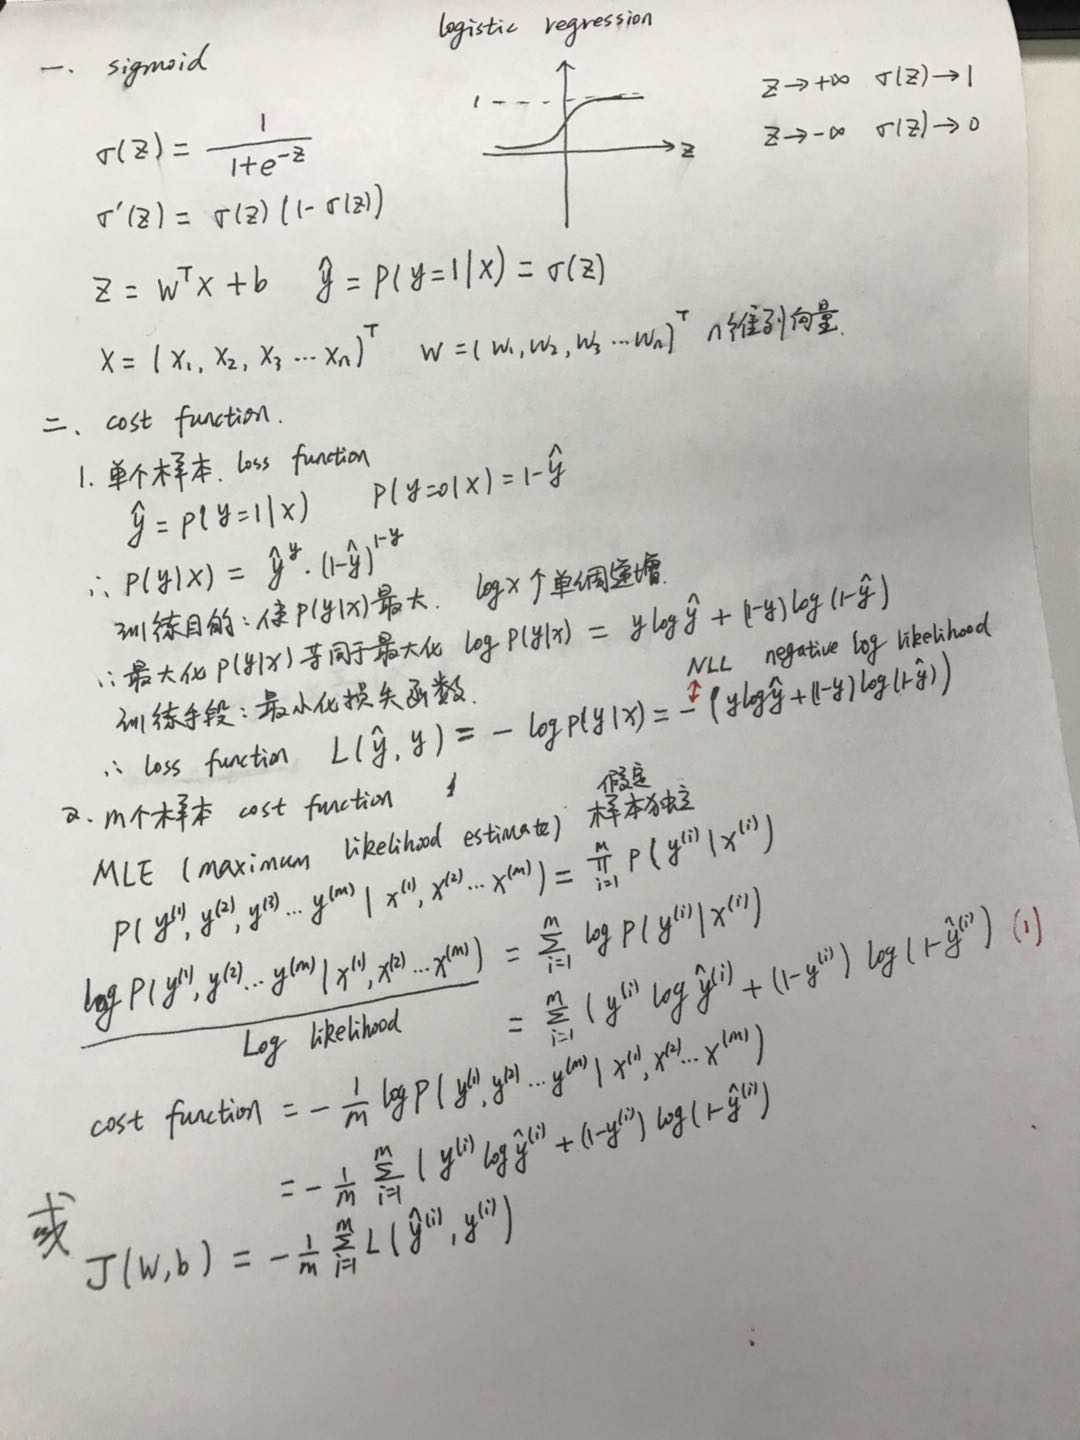 logistic regression
一. sigmoid
1
z
z→+∞ σ(z)→1
z→-∞ σ(z)→0
σ(z) = 1/(1+e^{-z})
σ'(z) = σ(z)(1-σ(z))
z = w^T x + b ŷ = P(y=1|x) = σ(z)
x = (x₁, x₂, x₃ ... xₙ)^T w = (w₁, w₂, w₃ ... wₙ)^T n维列向量.
二、cost function.
1. 单个样本. loss function
ŷ = P(y=1|x) P(y=0|x) = 1-ŷ
∴ P(y|x) = ŷ^y · (1-ŷ)^{1-y}
训练目的: 使P(y|x)最大. logx 个单调递增.
∴ 最大化P(y|x)等同于最大化 log P(y|x) = y log ŷ + (1-y) log(1-ŷ)
NLL negative log likelihood
训练手段: 最小化损失函数.
∴ loss function L(ŷ, y) = - log P(y|x) = - (y log ŷ + (1-y) log(1-ŷ))
2. m个样本 cost function
假定
MLE (maximum likelihood estimate) 样本独立
P(y^{(1)}, y^{(2)}, y^{(3)} ... y^{(m)} | x^{(1)}, x^{(2)} ... x^{(m)}) = ∏_{i=1}^{m} P(y^{(i)} | x^{(i)})
log P(y^{(1)}, y^{(2)} ... y^{(m)} | x^{(1)}, x^{(2)} ... x^{(m)}) = Σ_{i=1}^{m} log P(y^{(i)} | x^{(i)})
Log likelihood = Σ_{i=1}^{m} (y^{(i)} log ŷ^{(i)} + (1-y^{(i)}) log(1-ŷ^{(i)}) (1)
cost function = - 1/m log P(y^{(1)}, y^{(2)} ... y^{(m)} | x^{(1)}, x^{(2)} ... x^{(m)})
= - 1/m Σ_{i=1}^{m} (y^{(i)} log ŷ^{(i)} + (1-y^{(i)}) log(1-ŷ^{(i)})
或
J(w,b) = - 1/m Σ_{i=1}^{m} L(ŷ^{(i)}, y^{(i)})